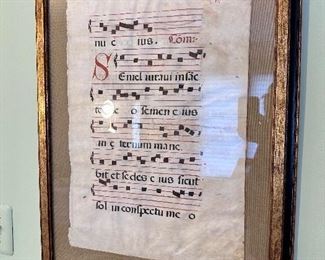 nu e ius. Com=
Semel iuraui in sāc
to me o semen e ius
in e ternum mane
bit et sedes e ius sicut
sol in conspectu me o